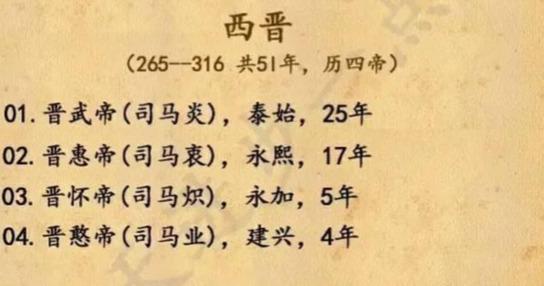 西晋
(265--316 共51年，历四帝)
01.晋武帝(司马炎)，泰始，25年
02.晋惠帝(司马衷)，永熙，17年
03.晋怀帝(司马炽)，永加，5年
04.晋憨帝(司马业)，建兴，4年